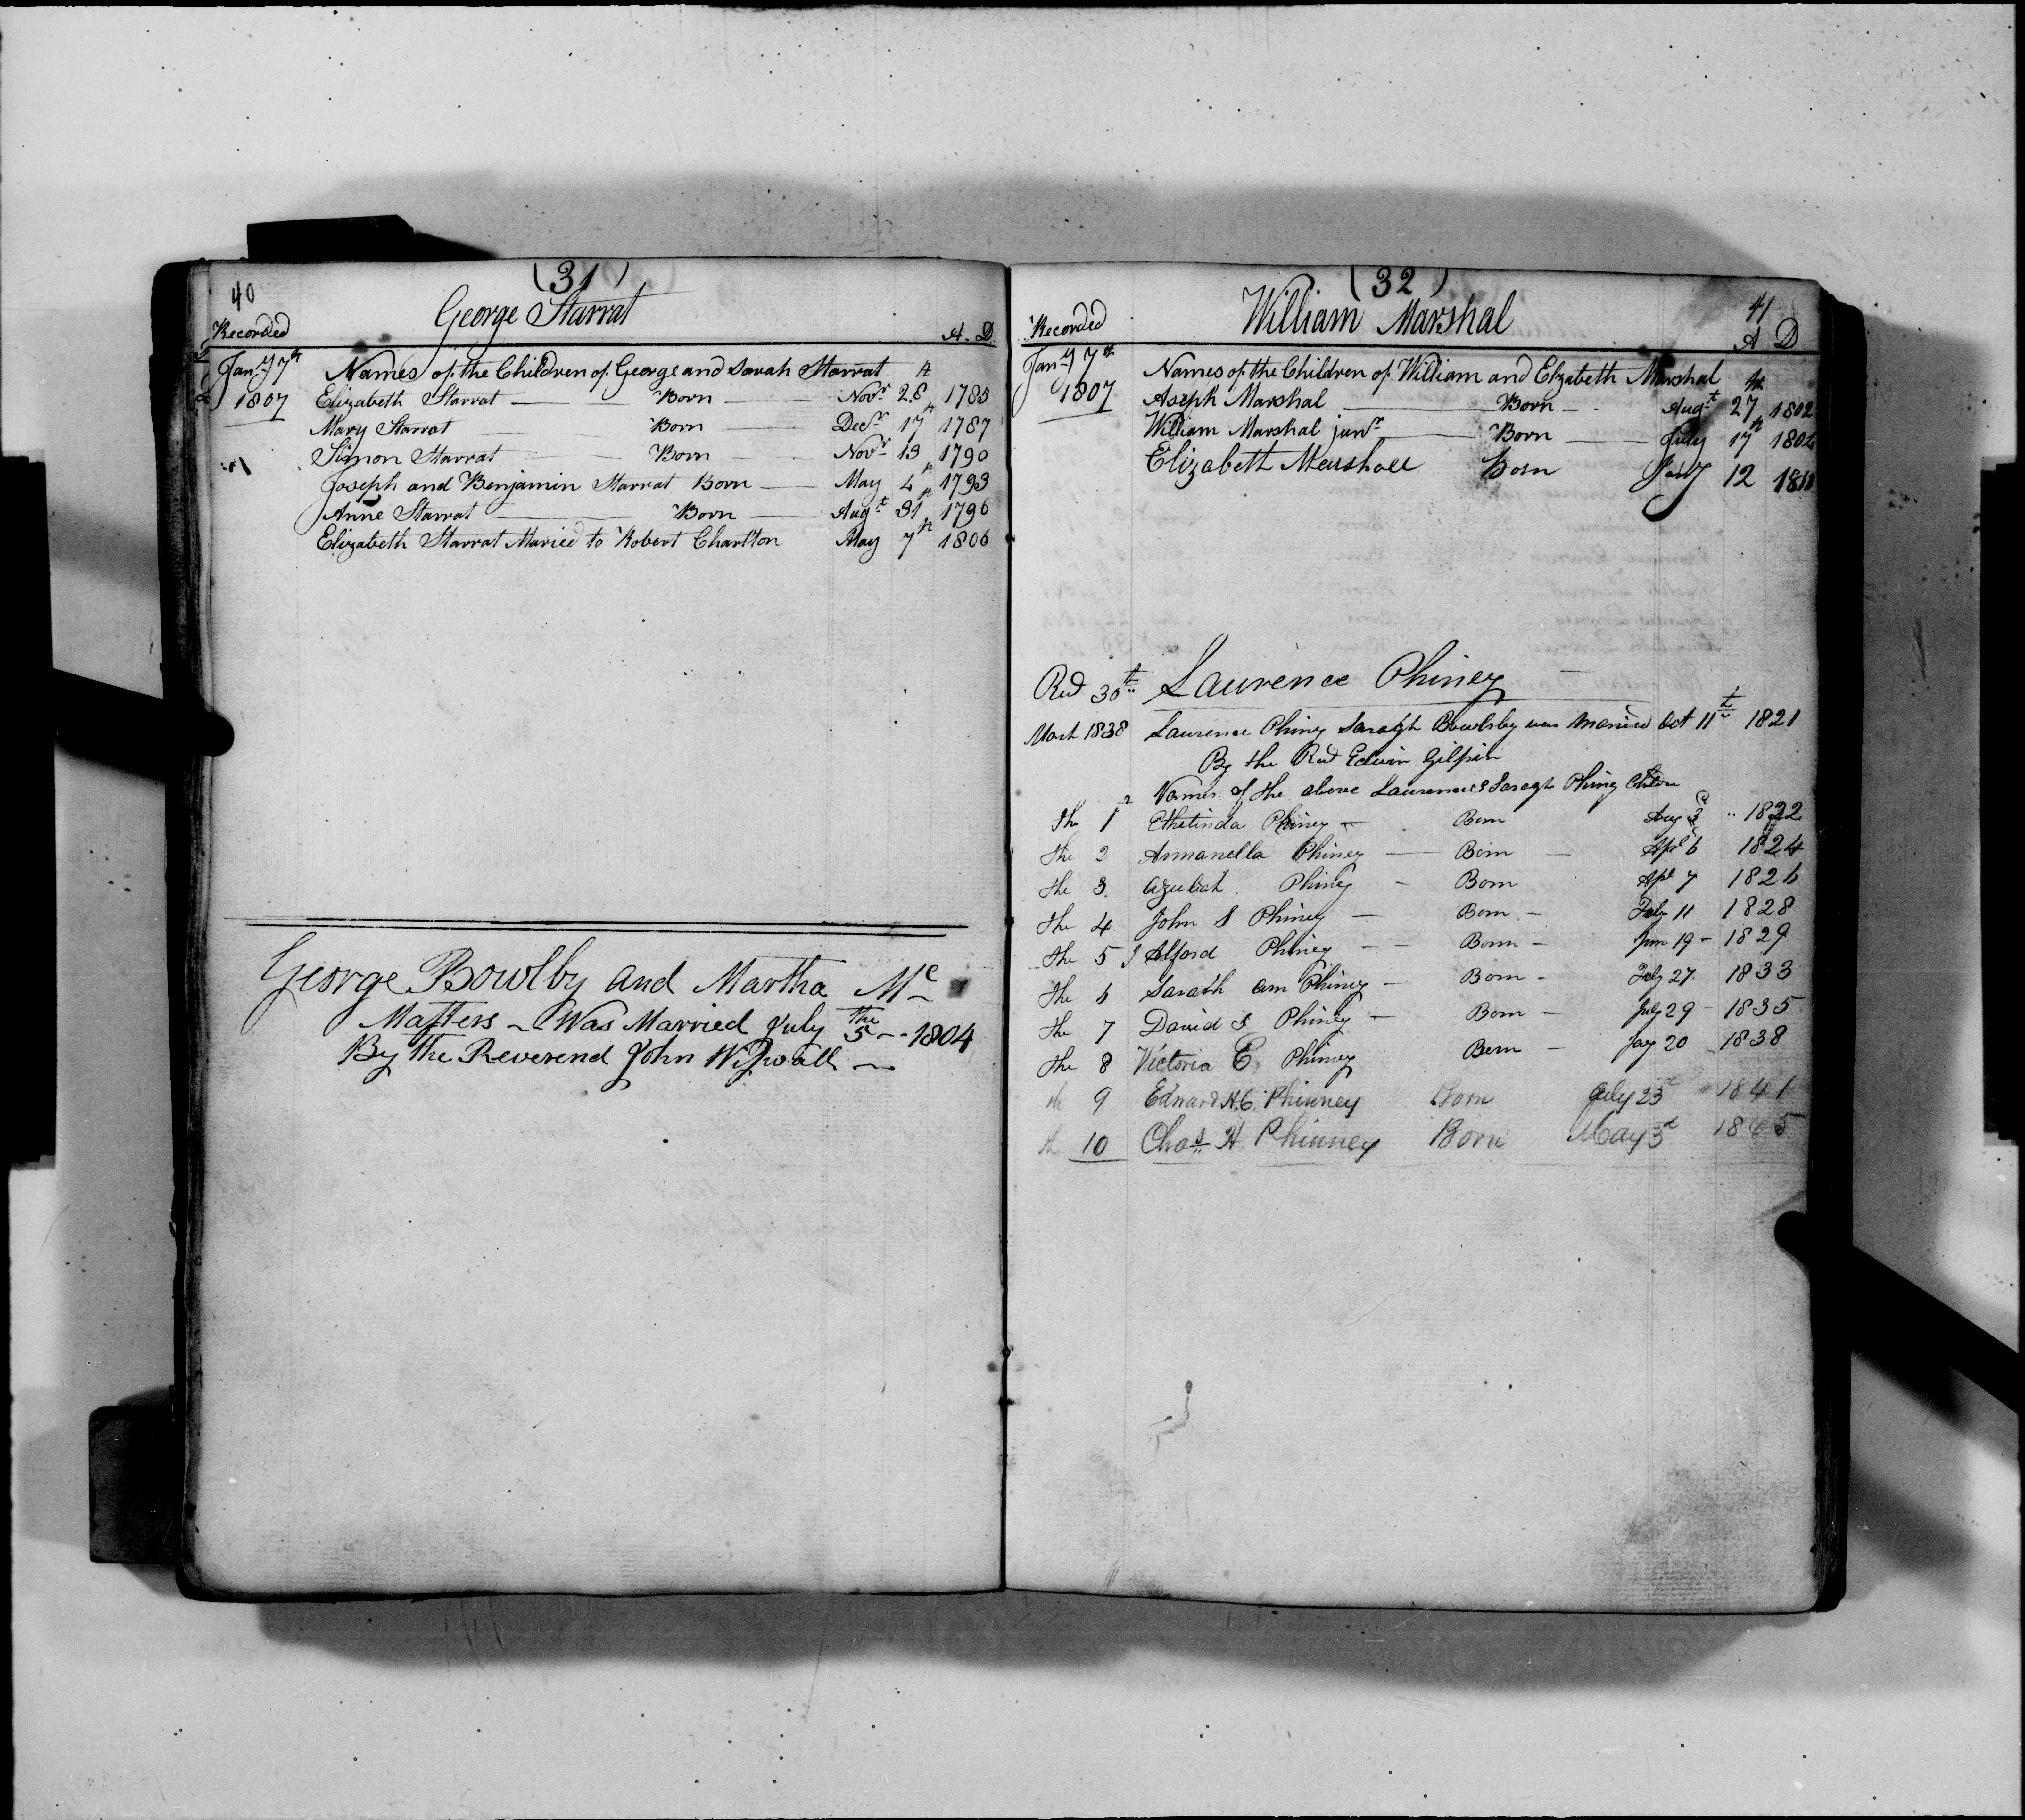 40
(31)
George Starrat
Recorded A. D
Jany 7th Names of the Children of George and Sarah Starrat
1807 Elizabeth Starrat Born Novr 28th 1785
Mary Starrat Born Decr 17th 1787
Simon Starrat Born Novr 13 1790
Joseph and Benjamin Starrat Born May 4th 1793
Anne Starrat Born Augt 31st 1796
Elizabeth Starrat Maried to Robert Charlton May 7th 1806
George Bowlby and Martha Mc
Masters Was Married July the 5 1804
By the Reverend John Wiswall
(32)
41
William Marshal
Recorded A D
Jany 7th Names of the Children of William and Elzabeth Marshal
1807 Aseph Marshal Born Augt 27th 1802
William Marshal junr Born July 17th 1804
Elizabeth Marshall Born Jany 12 1810
Red 30th Laurence Phiney
March 1838 Laurence Phiny Saragh Bowlsby was Maried Oct 11th 1821
By the Revd Edwin Gilpin
Names of the above Laurence & Saragh Phiny Children
The 1 Ethelinda Phiney Born Aug 3d 1822
The 2 Armanella Phiney Born Apl 6 1824
the 3 Azubah Phiney Born Apl 7 1826
the 4 John S Phiney Born Feby 11 1828
the 5 J Alford Phiney Born Jun 19 1829
the 6 Sarath Ann Phiney Born Feby 27 1833
The 7 David S Phiney Born July 29 1835
the 8 Victoria E. Phiney Born Jay 20 1838
th 9 Edward H.C. Phinney Born July 23d 1841
th 10 Chas H. Phinney Born May 3d 1845